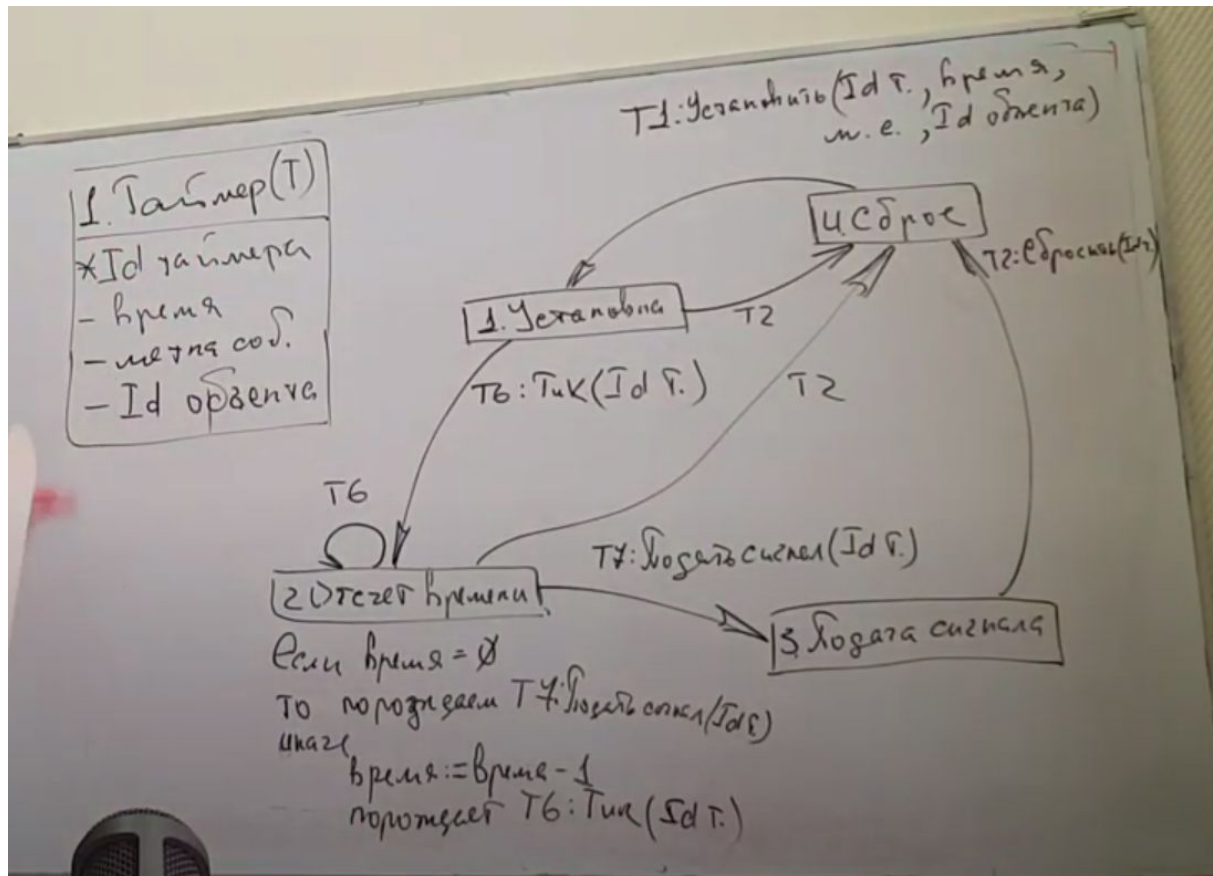 T1: Установить (Id т., время,
м.е., Id объекта)
1. Таймер (T)
*Id таймера
- время
- метка соб.
- Id объекта
4 Сброс
T2: Сбросить (Id т.)
1. Установка
T2
T6: Тик (Id т.)
T2
T6
T7: Подать сигнал (Id т.)
2 Отсчет времени
3. Подача сигнала
Если время = 0
то порождаем T7: Подать сигнал (Id т.)
иначе
время := время - 1
порождает T6: Тик (Id т.)